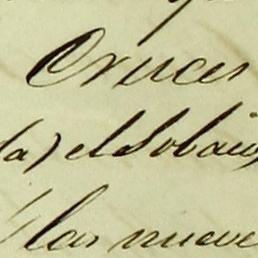 Cruces
a) el Sobaic
las nueve